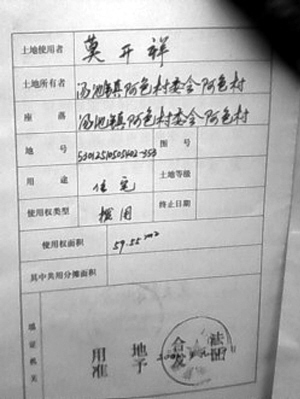 土地使用者 莫开祥
土地所有者 汤池镇阿色村委会阿色村
座 落 汤池镇阿色村委会阿色村
地 号 图 号
用 途 住宅 土地等级
使用权类型 拨用 终止日期
使用权面积 59.55m²
其中共用分摊面积
填证机关
用 地 合 法
准 予